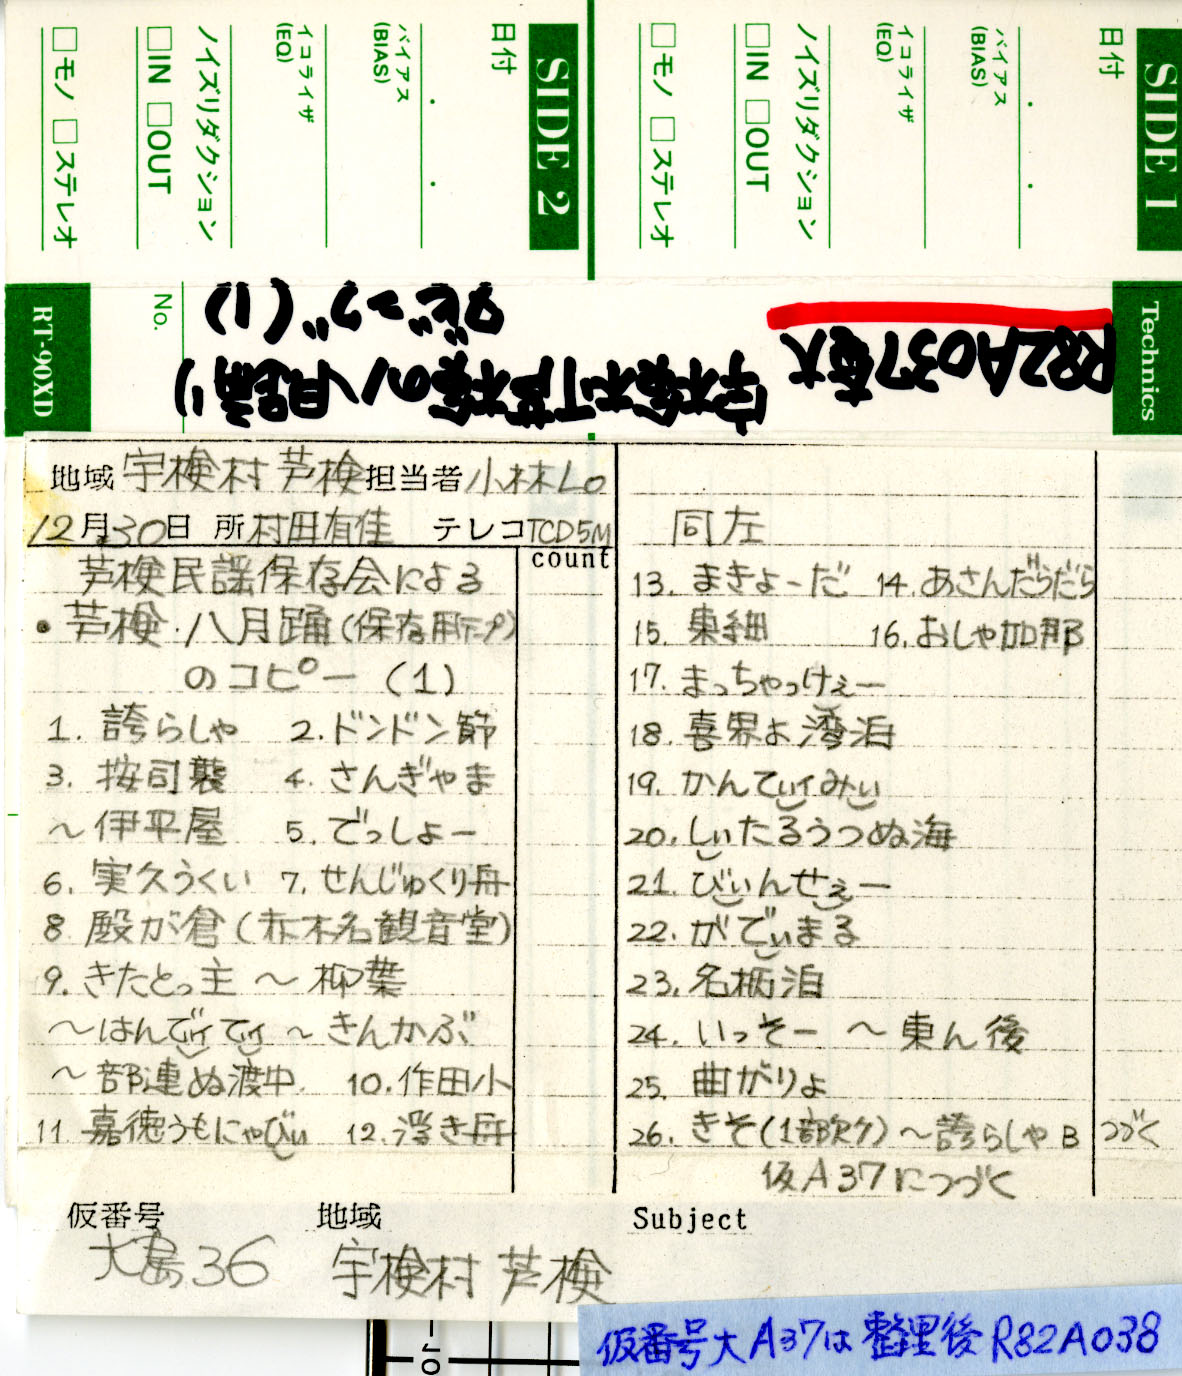 SIDE 2
日付
バイアス
(BIAS)
イコライザ
(EQ)
ノイズリダクション
□IN □OUT
□モノ □ステレオ
SIDE 1
日付
バイアス
(BIAS)
イコライザ
(EQ)
ノイズリダクション
□IN □OUT
□モノ □ステレオ
Technics
R82A037奄大
宇検村芦検の八月踊り
ダビング(1)
No.
RT-90XD
地域 宇検村 芦検 担当者 小林Lo
12月30日 所 村田有佳 テレコ TCD5M
count
芦検民謡保存会による
・芦検 八月踊(保存用テープ)
のコピー (1)
1. 誇らしゃ 2. ドンドン節
3. 按司襲 4. さんぎやま
～伊平屋 5. でっしょー
6. 実久うくい 7. せんじゅくり舟
8 殿が倉(赤木名観音堂)
9. きたとっ主 ～ 柳葉
～はんでィてィ ～ きんかぶ
～ 部連ぬ渡中 10. 作田小
11 嘉徳うもにゃびぃ 12. 浮き舟
同左
13. まきょーだ 14. あさんだらだら
15. 東細 16. おしゃ加那
17. まっちゃっけぇー
18. 喜界よ湾泊
19. かんてぃィみぃ
20. しぃたるうつぬ海
21. びぃんせぇー
22. がでぃまる
23. 名柄泊
24. いっそー ～ 東ん後
25. 曲がりょ
26. きそ(1部欠ク) ～誇らしゃB つづく
仮A37につづく
仮番号 地域 Subject
大島36 宇検村 芦検
仮番号大A37は整理後R82A038
-10